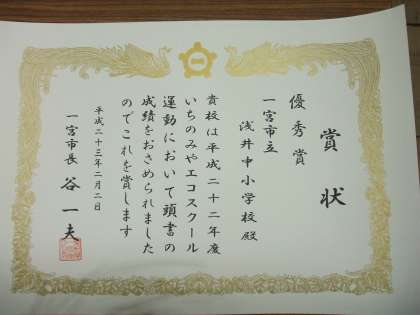 賞状
優秀賞
一宮市立
浅井中小学校殿
貴校は平成二十二年度
いちのみやエコスクール
運動において頭書の
成績をおさめられました
のでこれを賞します
平成二十三年二月二日
一宮市長 谷一夫